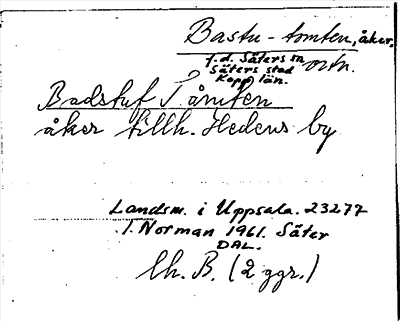 Bastu-tomten, åker,
f.d. Säters sn ortn.
Säters stad
Kopp. län.
Badstuf Tåmten
åker tillh. Hedens by
Landsm. i Uppsala. 23277
I. Norman 1961. Säter
DAL.
Uh. B. (2 ggr.)